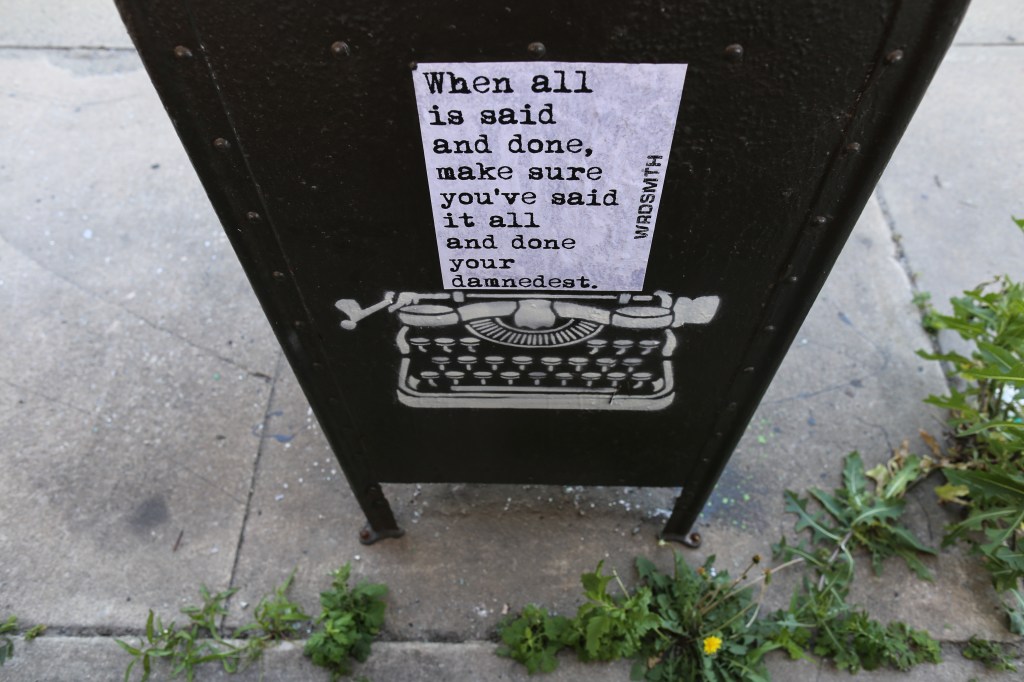 When all
is said
and done,
make sure
you've said
it all
and done
your
damnedest.
WRDSMTH